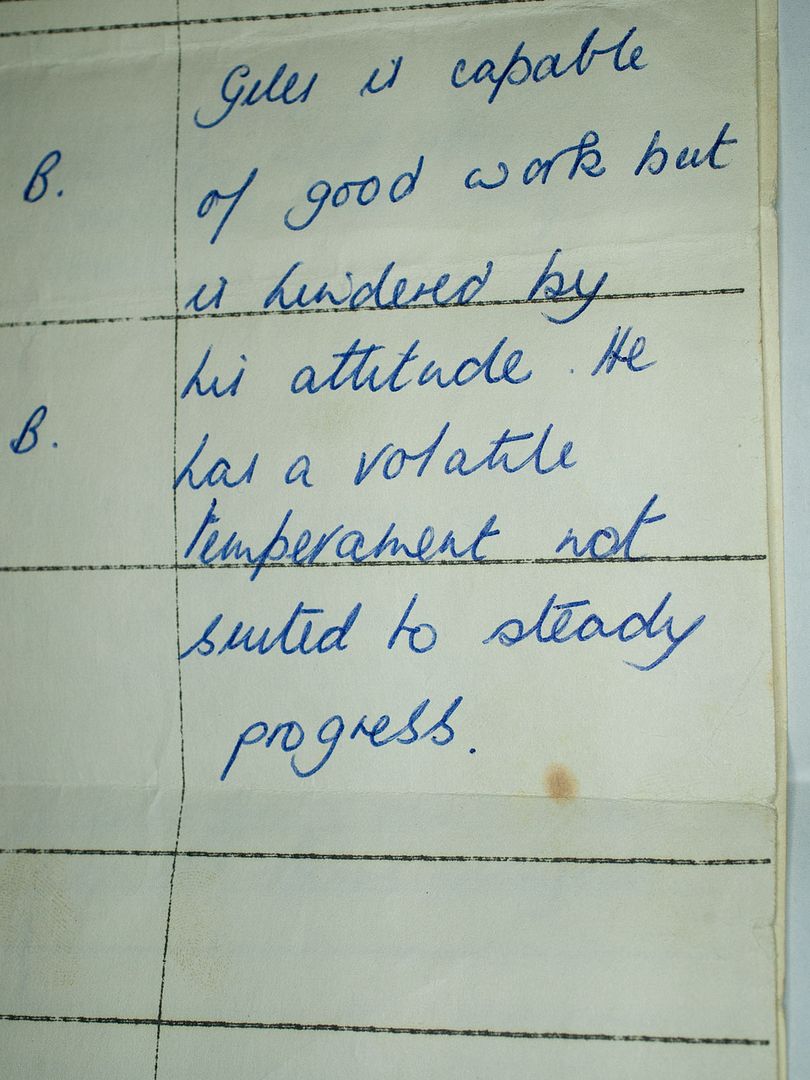 Giles is capable
B. of good work but
is hindered by
his attitude. He
B. has a volatile
temperament not
suited to steady
progress.